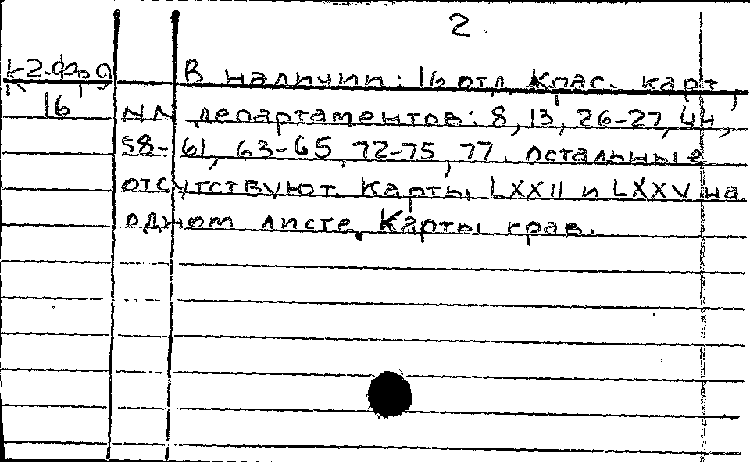 2.
К2-Фр 9
16
В наличии: 16 отд. клас. карт,
NN департаментов: 8, 13, 26-27, 44,
58-61, 63-65, 72-75, 77. Остальные
отсутствуют. Карты LXXII и LXXV на
одном листе. Карты грав.